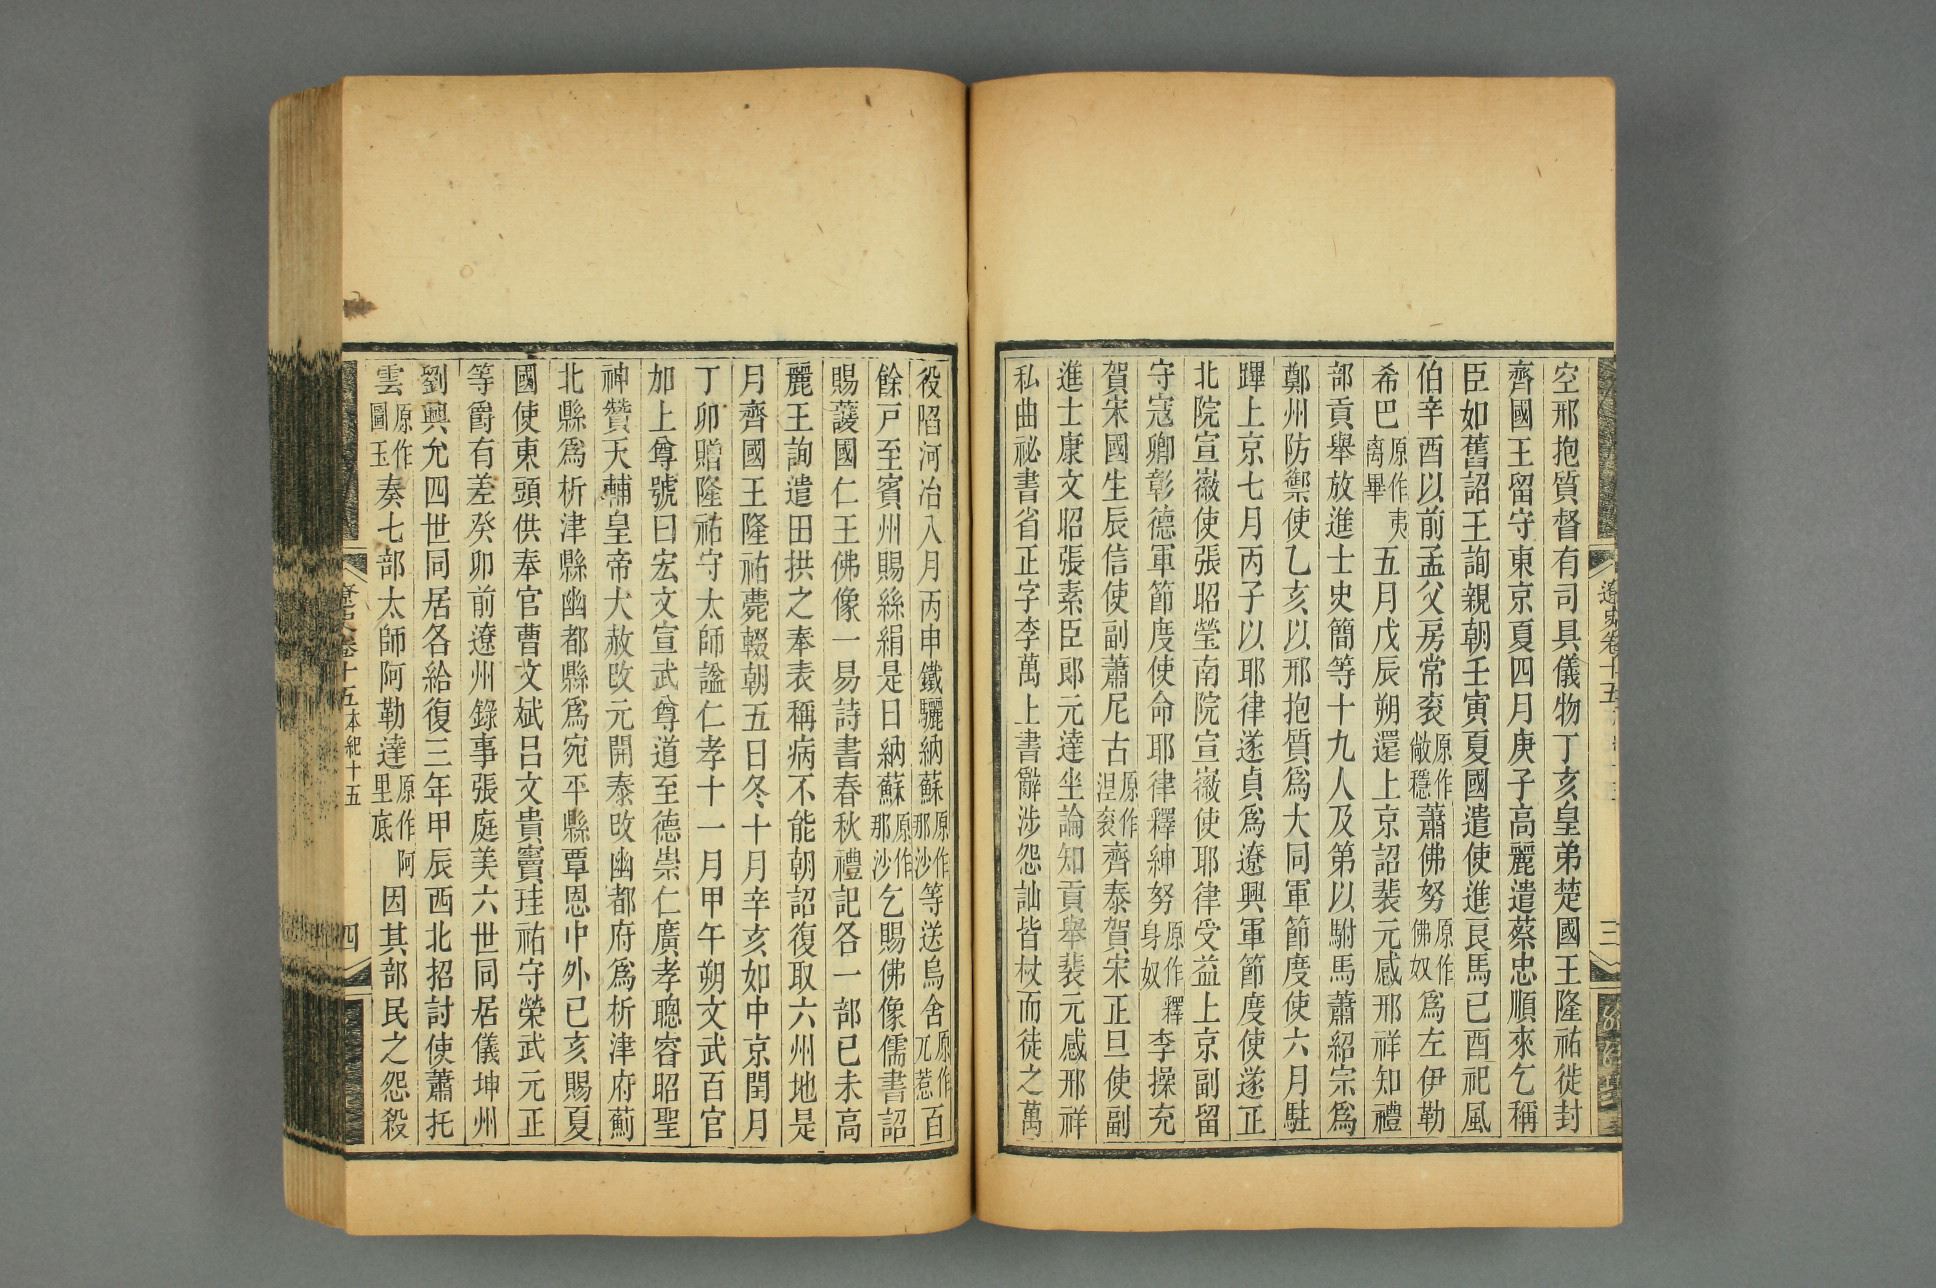 空邢抱質督有司具儀物丁亥皇弟楚國王隆祐徙封
齊國王留守東京夏四月庚子高麗遣蔡忠順來乞稱
臣如舊詔王詢親朝壬寅夏國遣使進良馬已酉祀風
伯辛酉以前孟父房常衮原作敞穩蕭佛努原作佛奴爲左伊勒
希巴原作夷离畢五月戊辰朔還上京詔裴元感邢祥知禮
部貢舉放進士史簡等十九人及第以駙馬蕭紹宗爲
鄭州防禦使乙亥以邢抱質爲大同軍節度使六月駐
蹕上京七月丙子以耶律遂貞爲遼興軍節度使遂正
北院宣徽使張昭瑩南院宣徽使耶律受益上京副留
守寇卿彰德軍節度使命耶律釋紳努原作釋身奴李操充
賀宋國生辰信使副蕭尼古原作涅衮齊泰賀宋正旦使副
進士康文昭張素臣郎元達坐論知貢舉裴元感邢祥
私曲祕書省正字李萬上書辭涉怨訕皆杖而徒之萬
役陷河冶八月丙申鐵驪納蘇原作那沙等送烏舍原作兀惹百
餘戸至賓州賜絲絹是日納蘇原作那沙乞賜佛像儒書詔
賜護國仁王佛像一易詩書春秋禮記各一部已未高
麗王詢遣田拱之奉表稱病不能朝詔復取六州地是
月齊國王隆祐薨輟朝五日冬十月辛亥如中京閏月
丁卯贈隆祐守太師諡仁孝十一月甲午朔文武百官
加上尊號曰宏文宣武尊道至德崇仁廣孝聰睿昭聖
神贊天輔皇帝大赦改元開泰改幽都府爲析津府薊
北縣爲析津縣幽都縣爲宛平縣覃恩中外已亥賜夏
國使東頭供奉官曹文斌呂文貴竇珪祐守榮武元正
等爵有差癸卯前遼州錄事張庭美六世同居儀坤州
劉興允四世同居各給復三年甲辰西北招討使蕭托
雲原作圖玉奏七部太師阿勒達原作阿里底因其部民之怨殺
遼史卷十五
三
遼史卷十五本紀十五
四